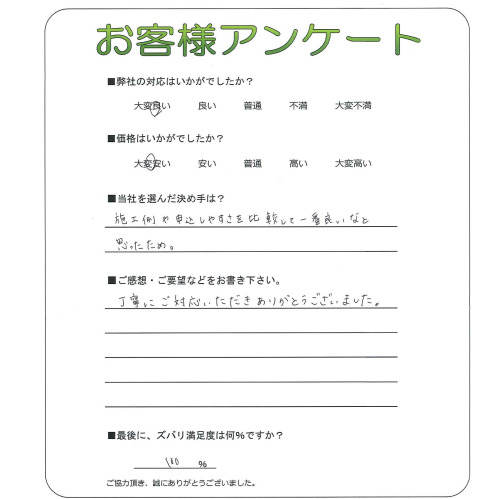 お客様アンケート
■弊社の対応はいかがでしたか？
大変良い 良い 普通 不満 大変不満
■価格はいかがでしたか？
大変安い 安い 普通 高い 大変高い
■当社を選んだ決め手は？
施工例や申込しやすさを比較して一番良いなと
思ったため。
■ご感想・ご要望などをお書き下さい。
丁寧にご対応いただきありがとうございました。
■最後に、ズバリ満足度は何％ですか？
100 ％
ご協力頂き、誠にありがとうございました。